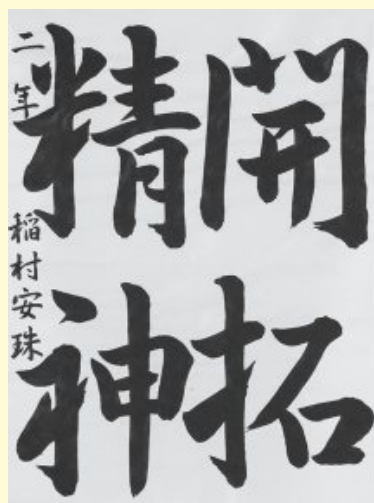 開拓
精神
二年 稲村安珠